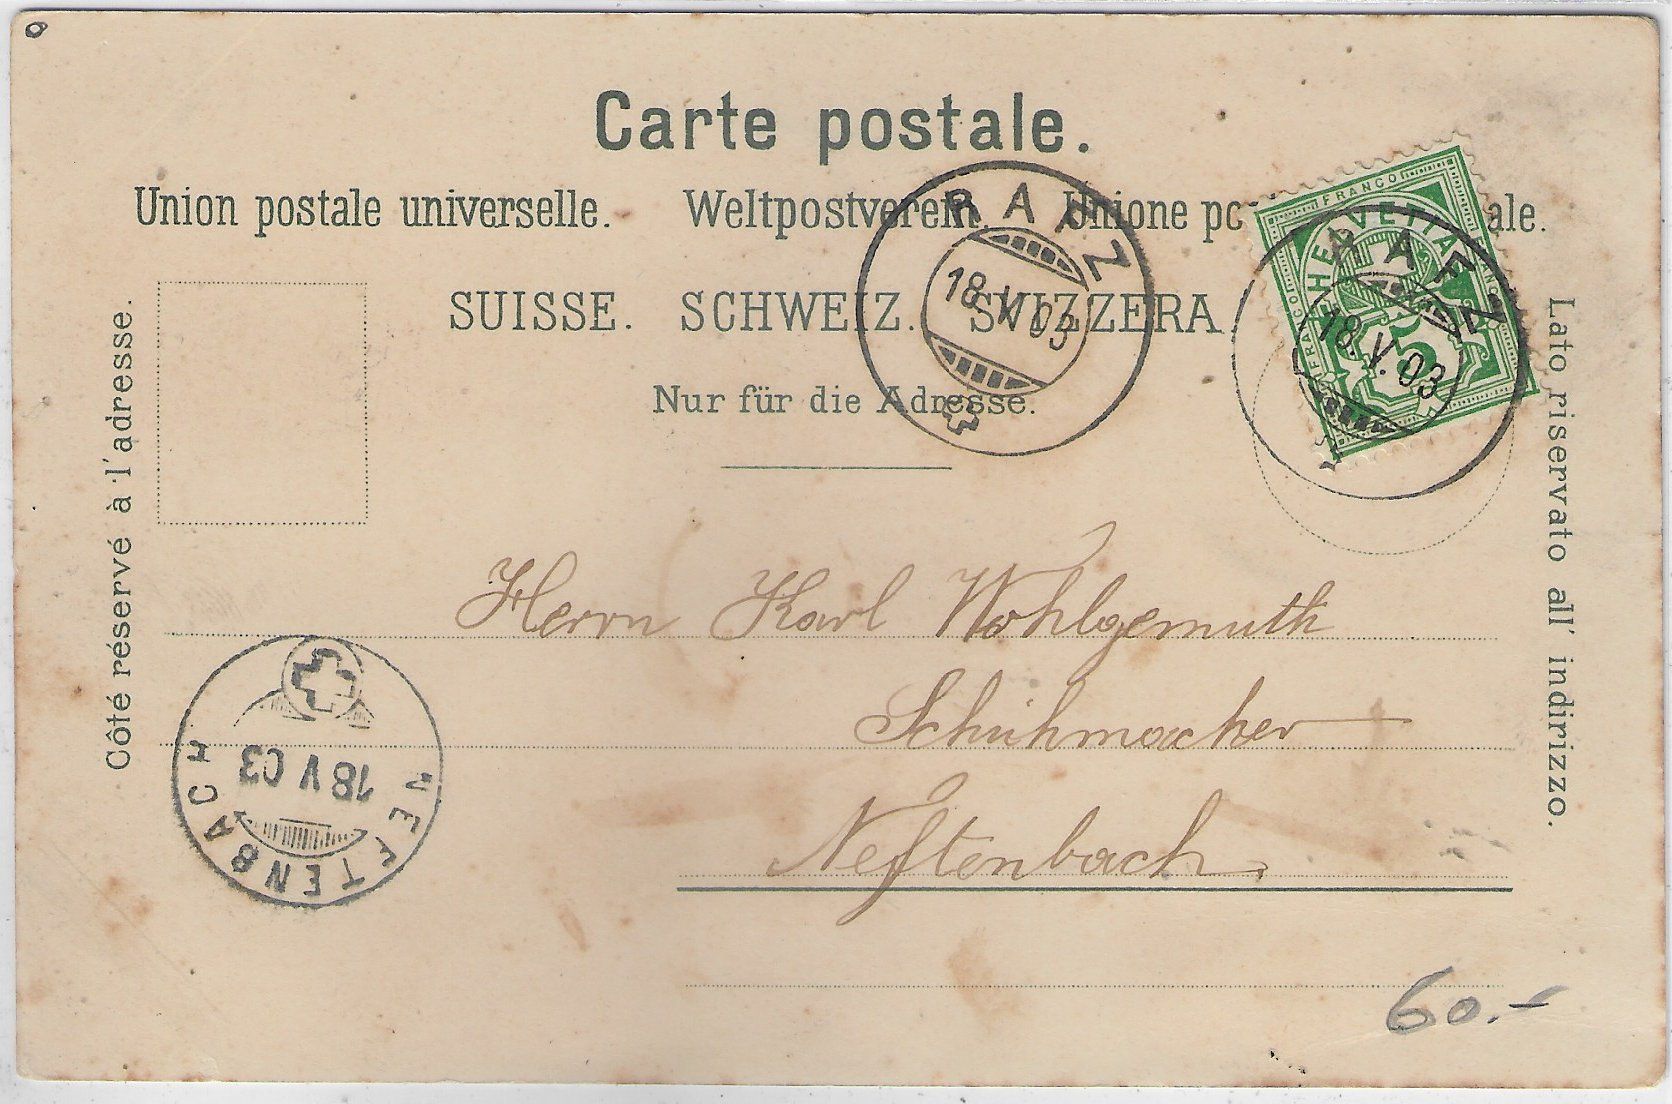 Carte postale.
Union postale universelle. Weltpostverein. Unione postale.
SUISSE. SCHWEIZ. SVIZZERA.
Nur für die Adresse.
Côté réservé à l'adresse.
Lato riservato all' indirizzo.
RAFZ
18.V.03
FRANCO
HELVETIA
FRANCO
FRANCO
5
RAFZ
18.V.03
Herrn Karl Wohlgemuth
Schuhmacher
Neftenbach.
NEFTENBACH
18 V 03
60.-